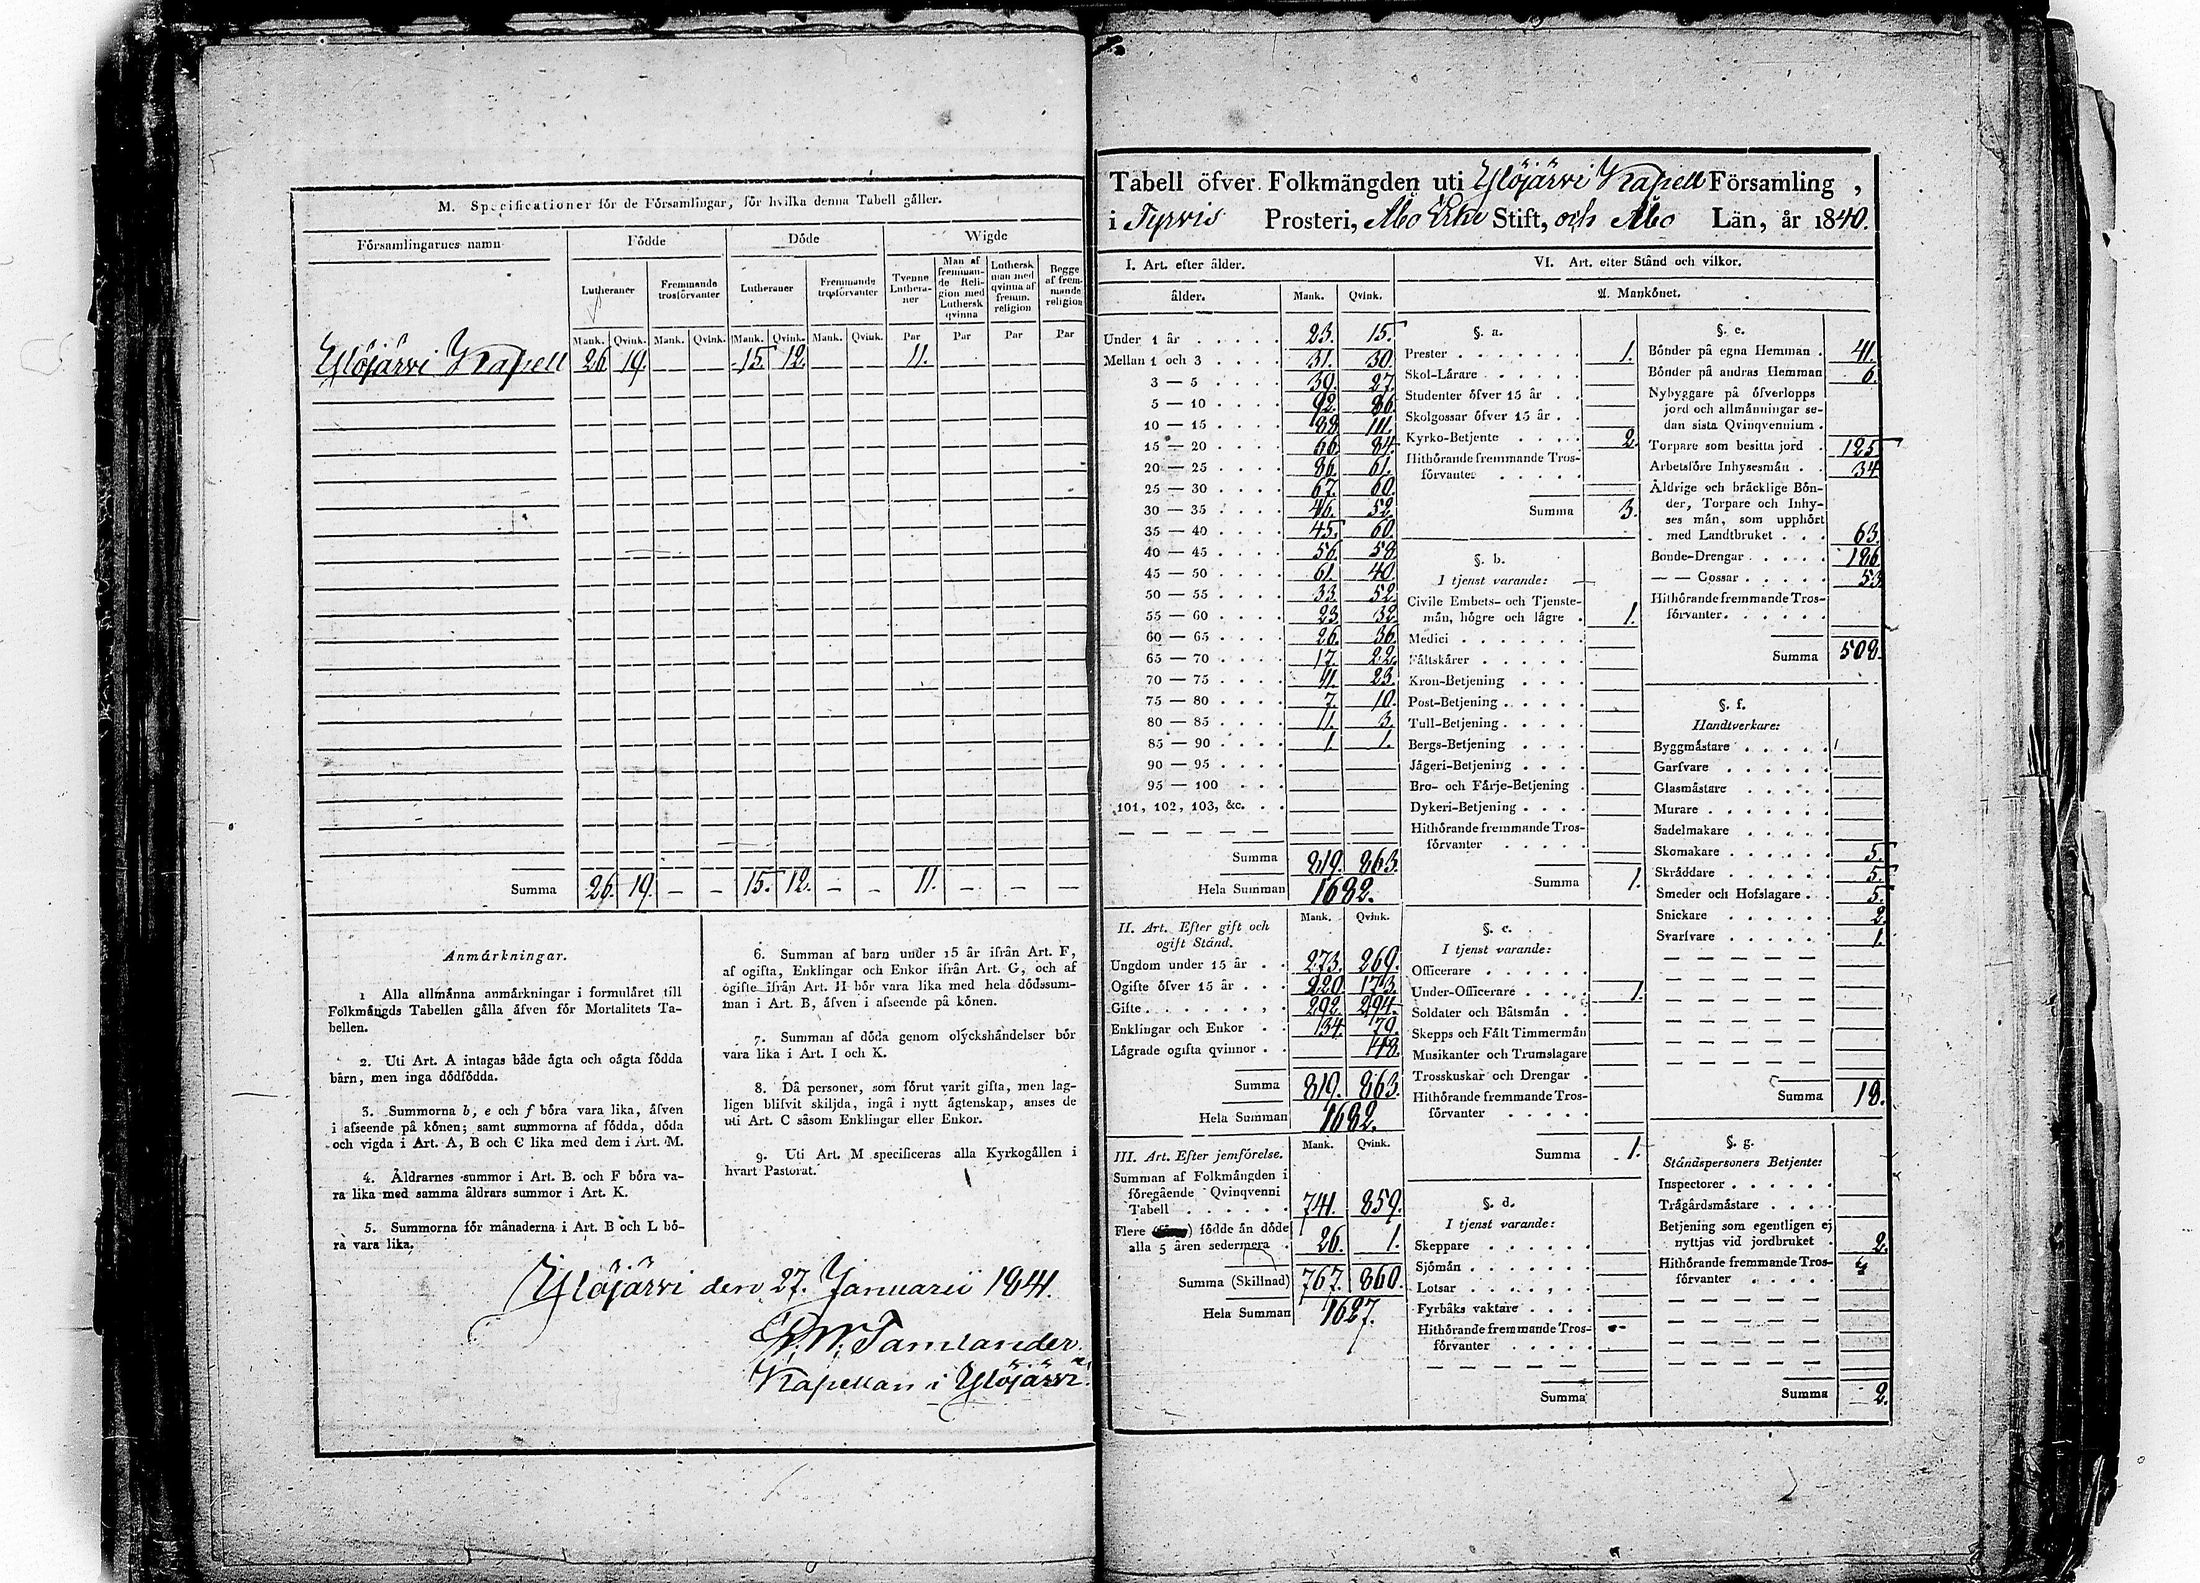 M. Specificationer för de Församlingar, för hvilka denna Tabell gäller.
Församlingarnes namn Födde Döde Wigde
Lutheraner Fremmande trosförvanter Lutheraner Fremmande trosförvanter Tvenne Lutheraner Man af fremmande Religion med Luthersk qvinna Luthersk man med qvinna af fremm. religion Begge af fremmande religion
Mank. Qvink. Mank. Qvink. Mank. Qvink. Mank. Qvink. Par Par Par Par
Ylöjärvi Kapell 26 19. — — 15. 12. 11.
Summa 26. 19. — — 15. 12. — — 11. — — —
Anmärkningar.
1 Alla allmänna anmärkningar i formuläret till
Folkmängds Tabellen gälla äfven för Mortalitets Ta-
bellen.
2. Uti Art. A intagas både ägta och oägta födda
barn, men inga dödfödda.
3. Summorna b, e och f böra vara lika, äfven
i afseende på könen; samt summorna af födda, döda
och vigda i Art. A, B och C lika med dem i Art. M.
4. Äldrarnes summor i Art. B. och F böra va-
ra lika med samma åldrars summor i Art. K.
5. Summorna för månaderna i Art. B och L bö-
ra vara lika.
6. Summan af barn under 15 år ifrån Art. F,
af ogifta, Enklingar och Enkor ifrån Art. G, och af
ogifte ifrån Art. H bör vara lika med hela dödssum-
man i Art. B, äfven i afseende på könen.
7. Summan af döda genom olyckshändelser bör
vara lika i Art. I och K.
8. Då personer, som förut varit gifta, men lag-
ligen blifvit skiljda, ingå i nytt ägtenskap, anses de
uti Art. C såsom Enklingar eller Enkor.
9. Uti Art. M specificeras alla Kyrkogällen i
hvart Pastorat.
Ylöjärvi den 27. Januarii 1841.
Tamlander.
Kapellan i Ylöjärvi.
Tabell öfver Folkmängden uti Ylöjärvi Kapell Församling,
i Tyrvis Prosteri, Åbo Erke Stift, och Åbo Län, år 1840.
I. Art. efter ålder.
ålder. Mank. Qvink.
Under 1 år 23. 15.
Mellan 1 och 3 31. 30.
3 — 5 39. 27.
5 — 10 92. 86.
10 — 15 88. 111.
15 — 20 66. 84.
20 — 25 86. 61.
25 — 30 67. 60.
30 — 35 46. 52.
35 — 40 45. 60.
40 — 45 56. 58.
45 — 50 61. 40.
50 — 55 33. 52.
55 — 60 23. 32.
60 — 65 26. 36.
65 — 70 17. 22.
70 — 75 23.
75 — 80 7. 10.
80 — 85 11. 3.
85 — 90 1. 1.
90 — 95
95 — 100
101, 102, 103, &c.
Summa 819. 863.
Hela Summan 1682.
II. Art. Efter gift och
ogift Stånd. Mank. Qvink.
Ungdom under 15 år 273. 269.
Ogifte öfver 15 år 220. 173.
Gifte 292. 294.
Enklingar och Enkor 79.
Lägrade ogifta qvinnor 48.
Summa 819. 863.
Hela Summan 1682.
III. Art. Efter jemförelse. Mank. Qvink.
Summan af Folkmängden i
föregående Qvinqvenni
Tabell 741. 859.
Flere födde än döde
alla 5 åren sedermera 26. 1.
Summa (Skillnad) 767. 860.
Hela Summan 1627.
VI. Art. efter Stånd och vilkor.
A. Mankönet.
§. a.
Prester 1.
Skol-Lärare
Studenter öfver 15 år
Skolgossar öfver 15 år
Kyrko-Betjente 2.
Hithörande fremmande Tros-
förvanter
Summa 3.
§. b.
I tjenst varande:
Civile Embets- och Tjenste-
män, högre och lägre 1.
Medici
Fältskärer
Kron-Betjening
Post-Betjening
Tull-Betjening
Bergs-Betjening
Jägeri-Betjening
Bro- och Färje-Betjening
Dykeri-Betjening
Hithörande fremmande Tros-
förvanter
Summa 1.
§. c.
I tjenst varande:
Officerare
Under-Officerare 1.
Soldater och Båtsmän
Skepps och Fält Timmermän
Musikanter och Trumslagare
Trosskuskar och Drengar
Hithörande fremmande Tros-
förvanter
Summa 1.
§. d.
I tjenst varande:
Skeppare
Sjömän
Lotsar
Fyrbåks vaktare
Hithörande fremmande Tros-
förvanter
Summa
§. e.
Bönder på egna Hemman 41.
Bönder på andras Hemman 6.
Nybyggare på öfverlopps
jord och allmänningar se-
dan sista Qvinqvennium
Torpare som besitta jord 125
Arbetsföre Inhysesmän 34
Äldrige och bräcklige Bön-
der, Torpare och Inhy-
ses män, som upphört
med Landtbruket 63.
Bonde-Drengar 186
— — Gossar 53
Hithörande fremmande Tros-
förvanter
Summa 508.
§. f.
Handtverkare:
Byggmästare
Garfvare
Glasmästare
Murare
Sadelmakare
Skomakare 5.
Skräddare 5.
Smeder och Hofslagare 5.
Snickare 2.
Svarfvare 1.
Summa 18.
§. g.
Ståndspersoners Betjente:
Inspectorer
Trägårdsmästare
Betjening som egentligen ej
nyttjas vid jordbruket 2.
Hithörande fremmande Tros-
förvanter
Summa 2.